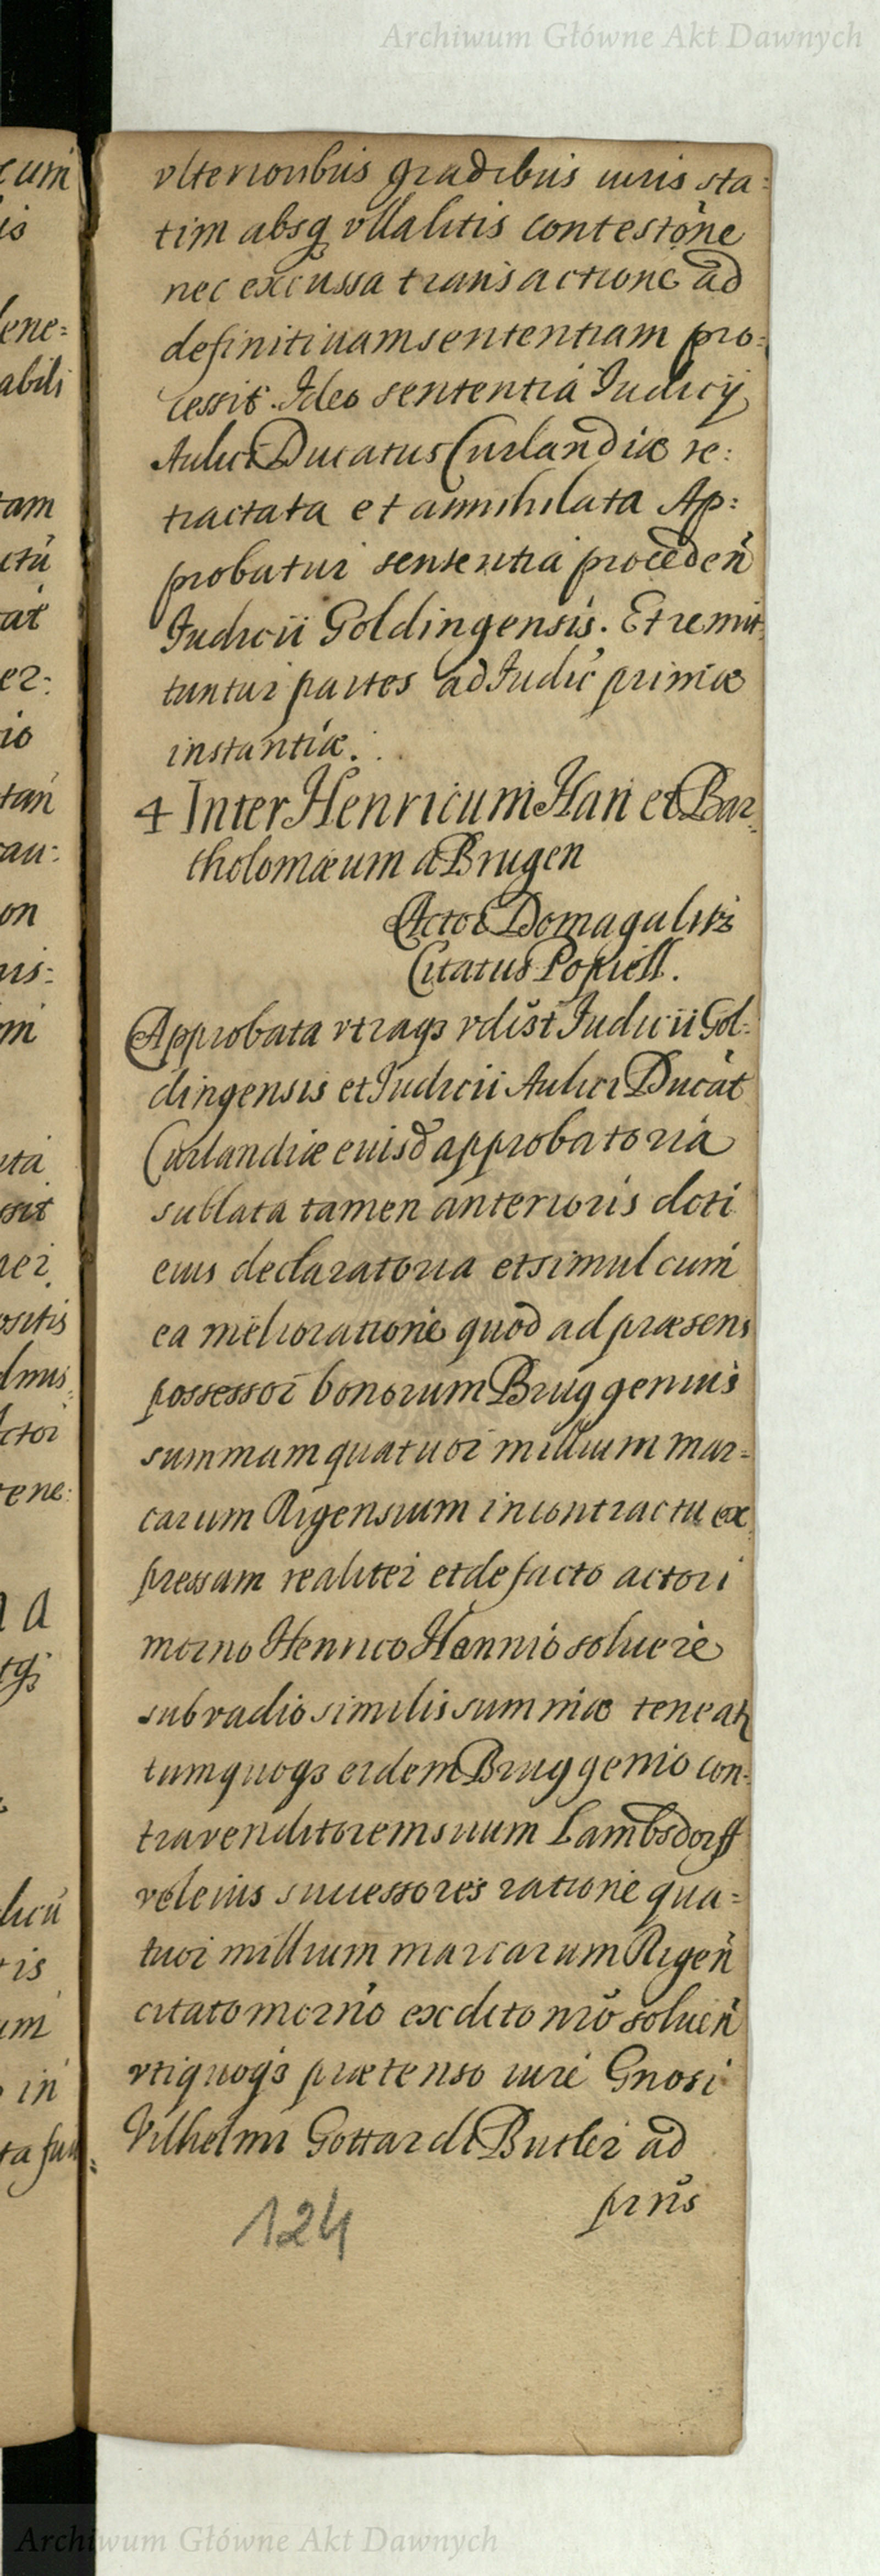 Archiwum Główne Akt Dawnych
vlterioribus gradibus iuris sta:
tim absq vlla litis contestõne
nec excussa transactione ad
definitiuam sententiam pro:
cessit. Ideo sententia Iudicij
Aulici Ducatus Curlandiæ re:
tractata et annihilata Ap:
probatur sententia præceden̄
Iudicii Goldingensis. Et remit:
tuntur partes ad Iudic̄ primæ
instantiæ.
4 Inter Henricum Han et Bar:
tholomæum a Brugen
Actor Domagalitz
Citatus Popiell.
Approbata vtraqз Iudicii Gol:
dingensis et Iudicii Aulici Ducat̄
Curlandiæ eiusd approbatoria
sublata tamen anterioris
eius declaratoria et simul cum
ea melioratione quod ad præsens
possessor bonorum Bruggenius
summam quatuor millium mar=
carum Rigensium in contractu ex
pressam realiter et de facto actori
morno Henrico Hannio soluere
sub vadio similis summæ teneatꝛ
tum quoqз eidem Bruggenio con:
tra venditorem suum Lambsdorff
vel eius successores ratione qua=
tuor millium marcarum Rigen̄
citato morno ex dcto nro soluen̄
vti quoqз prætenso iure Gnosi
Vilhelmi Gottardi Butler ad
prn̄s
124
cum
is
ene=
abili
tam
ctū
at
er:
io
tan̄
au:
on
nis:
ni
uta
ssit
nei
ositis
dmus
ctor
tene:
a
tqз
licū
tis
um
in
ta fu
Archiwum Główne Akt Dawnych